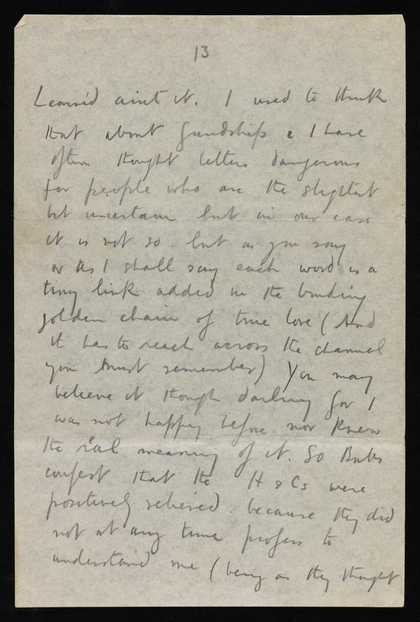 13
Learn'd aint it. I used to think
that about friendship & I have
often thought letters dangerous
for people who are the slightest
bit uncertain but in our case
it is not so. but as you say
or as I shall say each word is a
tiny link added in the binding
golden chain of true love (And
it has to reach across the channel
you must remember) You may
believe it though darling for I
was not happy before nor knew
the real meaning of it. So
confest that the H & Cs were
positively relieved. because they did
not at any time profess to
understand me (being as they thought